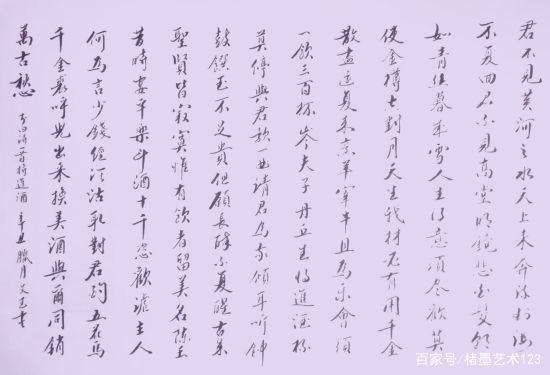 君不見黃河之水天上来奔流到海
不復回君不見高堂明鏡悲白髮朝
如青絲暮成雪人生得意須盡歡莫
使金樽空對月天生我材必有用千金
散盡還復来烹羊宰牛且為樂會須
一飲三百杯岑夫子丹丘生將進酒杯
莫停與君歌一曲請君為我傾耳听鐘
鼓饌玉不足貴但願長醉不復醒古来
聖賢皆寂寞惟有飲者留其名陳王
昔時宴平樂斗酒十千恣歡謔主人
何為言少錢徑須沽取對君酌五花馬
千金裘呼兒出来換美酒與爾同銷
萬古愁
李白詩一首將進酒 辛丑臘月
百家号/楮墨艺术123